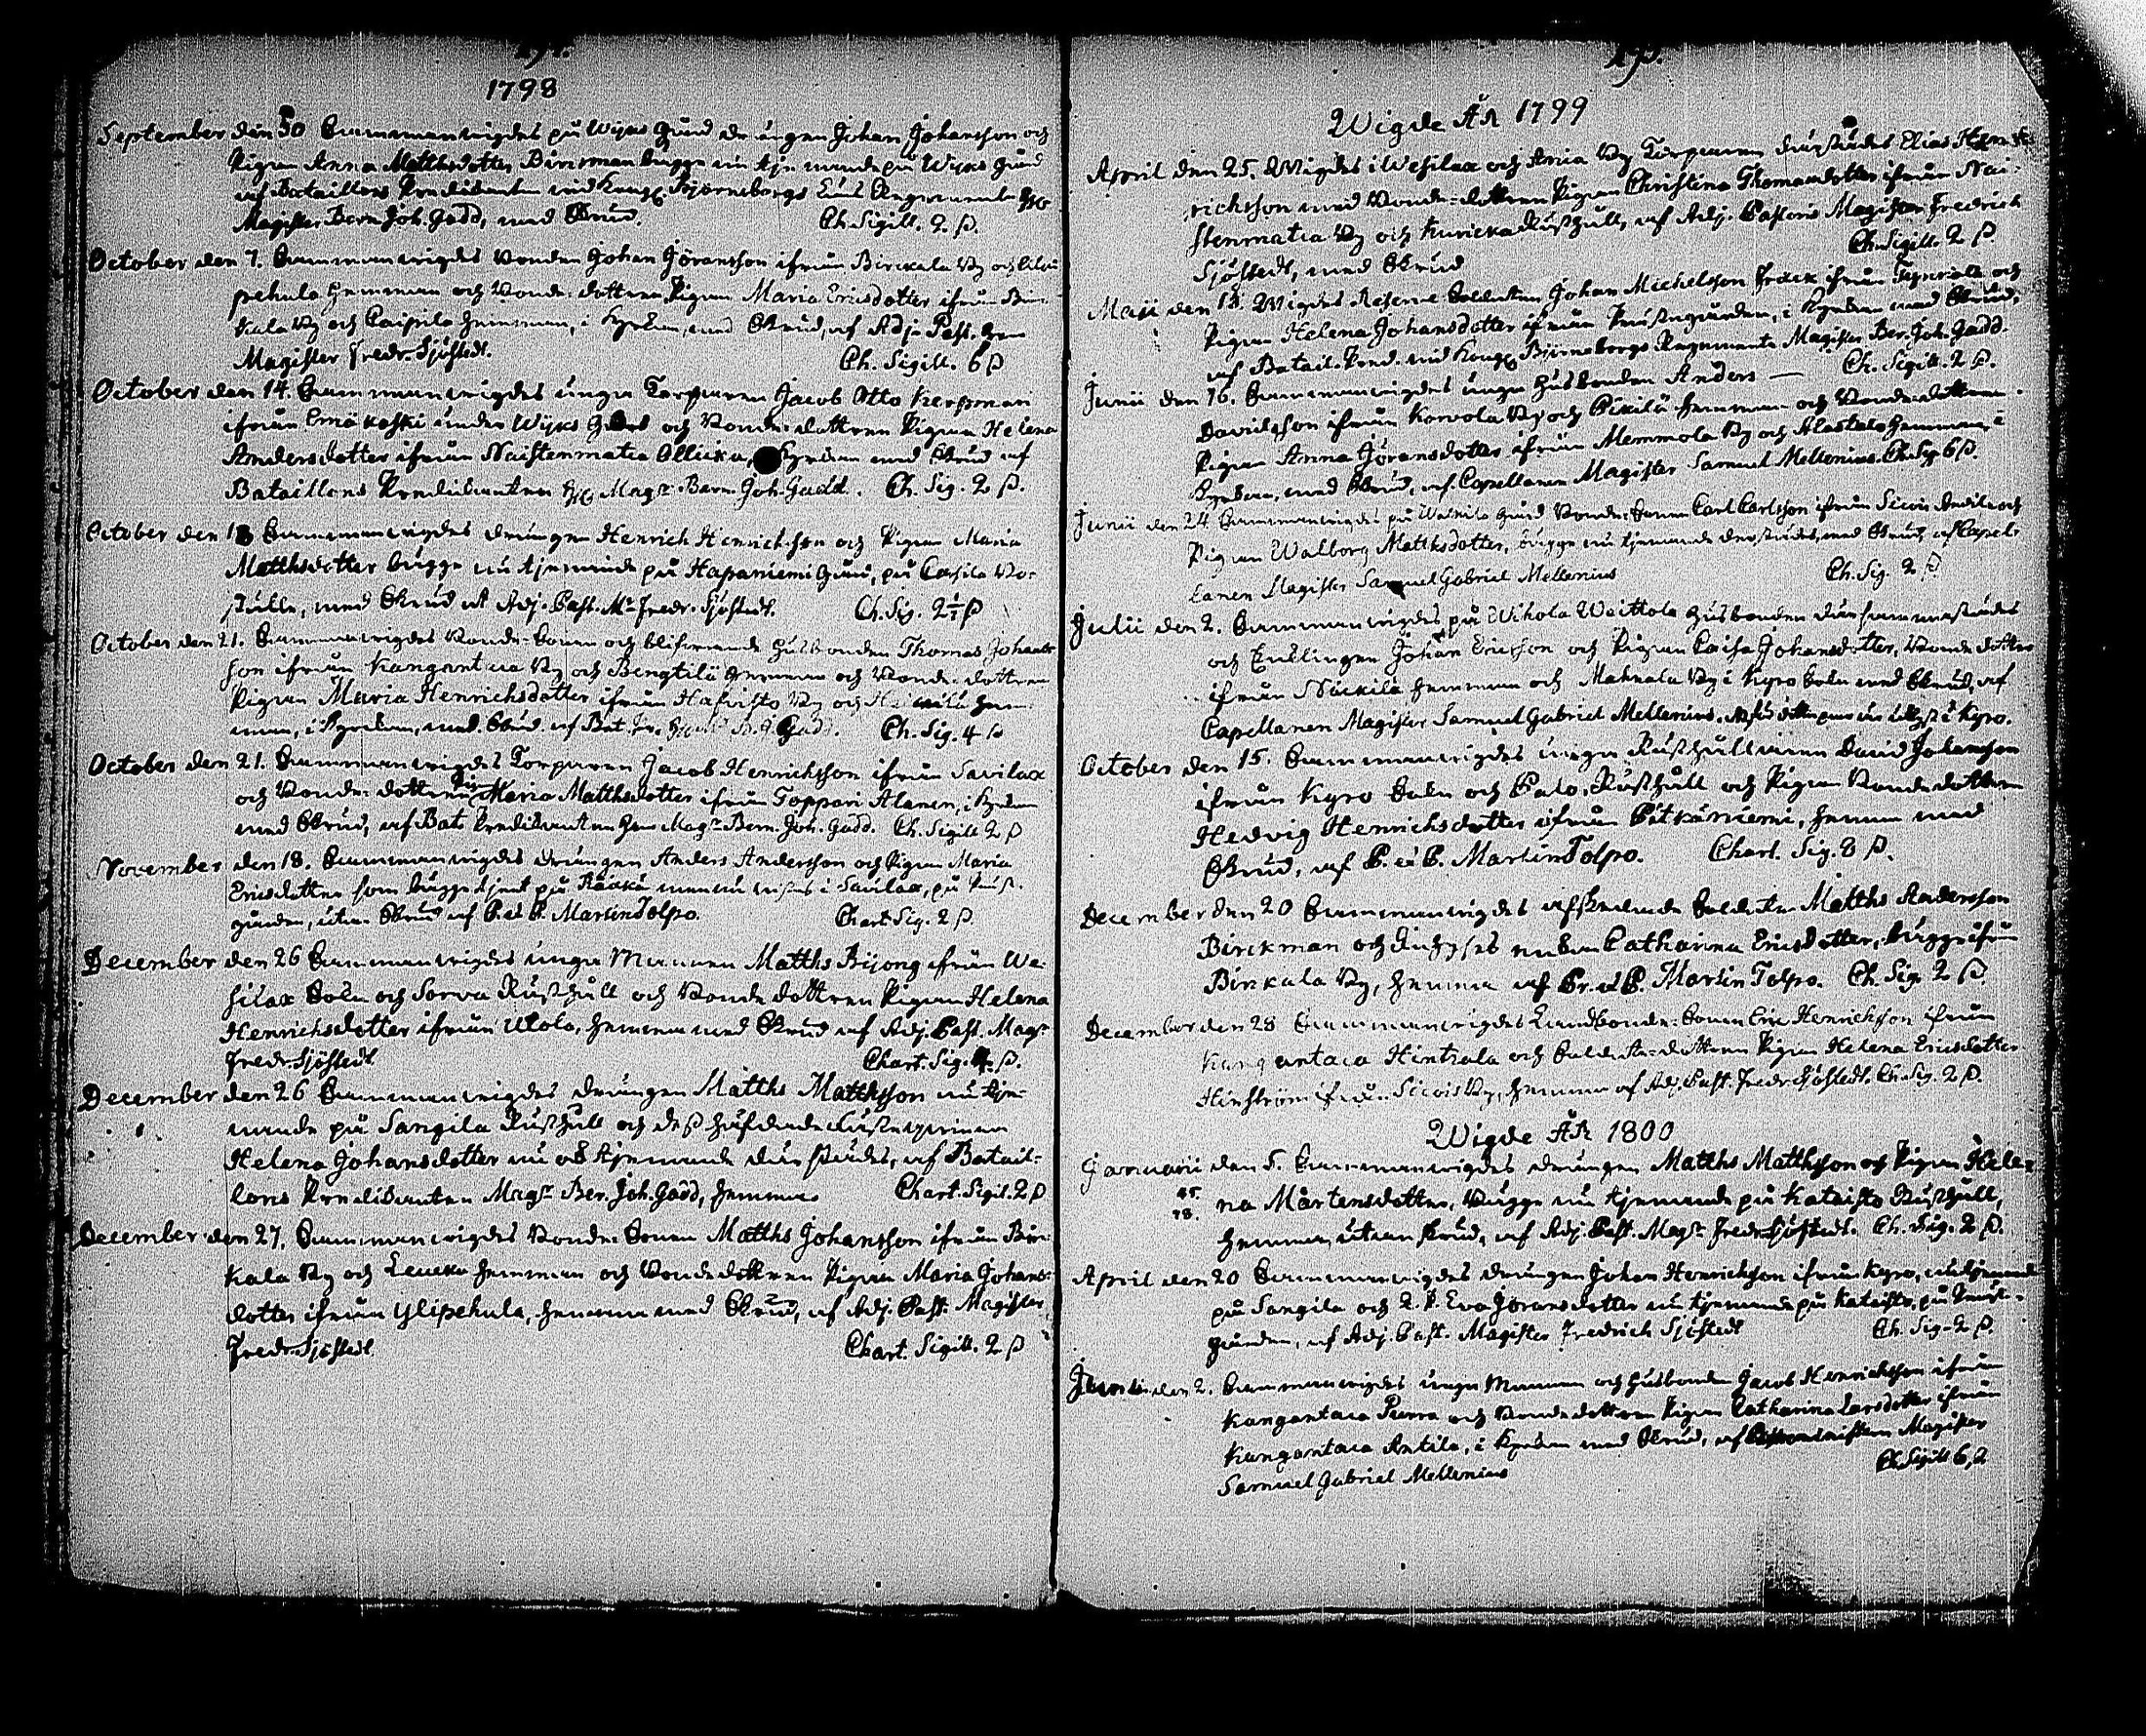 1798
September den 30 Sammanwigdes på Wijks Gård drängen Johan Johansson och
Pigan Anna Matthsdotter Binnman bägge nu tjenande på Wijks Gård
af Bataillons Predikanten wid Kongl Björneborgs Läns Regemente
Magister Bern. Joh. Gadd, med Skrud. Ch. Sigill. 2 ß.
October den 7. Sammanwigdes Bonden Johan Jöransson ifrån Birckala By och
pehula Hemman och Bonde-dottren Pigan Maria Ericsdotter ifrån Bir-
kala By och Paipila Hemman, i Kyrkan, med Skrud, af Adj. Past. Herr
Magister Fredr. Sjöstedt. Ch. Sigill. 6 ß
October den 14. Sammanwigdes unga Torparen Jacob Otto Kerpman
ifrån Emäkoski under Wijks Gård och Bonde-dottren Pigan Helena
Andersdotter ifrån Naistenmatca Ollicka, i Kyrkan med Skrud af
Bataillons Predikanten Magr. Bern. Joh. Gadd. Ch. Sig. 2 ß.
October den 18 Sammanwigdes drängen Henrich Henrichsson och Pigan Maria
Matthsdotter bägge nu tjenande på Hapaniemi Gård, på Caisila Bo-
ställe, med Skrud af Adj. Past. Mr. Fredr. Sjöstedt. Ch. Sig. 2 ß
October den 21. Sammanwigdes Bonde-Sonen och blifwande Husbonden Thomas Johans-
son ifrån Kangantaa By och Bengtilä Hemman och Bonde-dottren
Pigan Maria Henrichsdotter ifrån Hafvisto By och Heikkilä Hem-
man, i Kyrkan, med Skrud af Bat. Pr. B. J. Gadd. Ch. Sig. 4 ß
October den 21. Sammanwigdes Torparen Jacob Henrichsson ifrån Savilax
och Bonde-dottren Pig. Maria Matthsdotter ifrån Toppari Alanen, i Kyrkan
med Skrud, af Bat. Predikanten Herr Magr. Bern. Joh. Gadd. Ch. Sigill 2 ß
November den 18. Sammanwigdes drängen Anders Andersson och Pigan Maria
Ericsdotter som bägge tjent på Räckä men nu wistas i Savilax, på Präst-
gården, utan Skrud af P. et P. Martin Tolpo. Chart. Sig. 2 ß
December den 26 Sammanwigdes unga Mannen Matths Bijong ifrån We-
silax Sokn och Sorva Rusthåll och Bonde dottren Pigan Helena
Henrichsdotter ifrån Utola, Hemma med Skrud af Adj. Past. Magr.
Fredr. Sjöstedt Chart. Sig. 4. ß.
December den 26 Sammanwigdes drängen Matths Matthsson nu tje-
nande på Sangila Rusthåll och dess häfdade Qwinnan
Helena Johansdotter nu ock tjenande därstädes, af Batail-
lons Predikanten Magr. Ber. Joh. Gadd, Hemma Chart. Sigil. 2 ß
December den 27. Sammanwigdes Bonde-Sonen Matths Johansson ifrån Bir-
kala By och Leucka Hemman och Bondedottren Pigan Maria Johans-
dotter ifrån Ylipehula, Hemma med Skrud, af Adj. Past. Magister
Fredr. Sjöstedt Chart. Sigill. 2 ß
Wigde ÅR 1799
April den 25. Wigdes i Wesilax och Ania By Torparen därstädes Elias Hen-
richsson med Bonde-dottren Pigan Christina Thomasdotter ifrån Nai-
stenmatca By och Kuricka Rusthåll, af Adj. Pastoris Magister Fredrich
Sjöstedt, med Skrud Ch. Sigill. 2 ß.
Maii den 18. Wigdes Reserve Soldaten Johan Michelsson Frack ifrån och
Pigan Helena Johansdotter ifrån Prästegården, i Kyrkan med Skrud,
af Batail. Pred. wid Kongl Björneborgs Regemente Magister Ber. Joh. Gadd.
Ch. Sigill. 2 ß.
Junii den 16. Sammanwigdes unga Husbonden Anders —
Davidsson ifrån Korvola By och Pikilä Hemman och Bondedottren
Pigan Anna Jöransdotter ifrån Memmola By och Alastalo Hemman, i
Kyrkan, med Skrud, af Capellanen Magister Samuel Mellenius. Ch. Sig. 6 ß.
Junii den 24 Sammanwigdes på Walkila Gård Bonde-Sonen Carl Carlsson ifrån Siuro Andila och
Pigan Walborg Matthsdotter, bägge nu tjenande derstädes, med Skrud, af Capel-
lanen Magister Samuel Gabriel Mellenius Ch. Sig. 2 ß
Julii den 2. Sammanwigdes på Wihola Waittola Husbonden därsammastädes
och Enklingen Johan Ericsson och Pigan Caisa Johansdotter, Bonde dotter
ifrån Näckilä Hemman och Mahnala By i Kyro Sokn med Skrud, af
Capellanen Magister Samuel Gabriel Mellenius. i Kyro.
October den 15. Sammanwigdes unga Rusthållaren David Johansson
ifrån Kyro Sokn och Palo Rusthåll och Pigan Bondedottren
Hedvig Henrichsdotter ifrån Pitkäniemi, Hemma med
Skrud, af P. et P. Martin Tolpo. Chart. Sig. 8 ß.
December den 20 Sammanwigdes afskedade Soldaten Matths Andersson
Birckman och Catharina Ericsdotter, bägge ifrån
Birkala By, Hemma af Pr. et P. Martin Tolpo. Ch. Sig. 2 ß.
December den 28 Sammanwigdes Landbonde-Sonen Eric Henrichsson ifrån
Kangantaca Hintzala och Soldate-dottren Pigan Helena Ericsdotter
Hinström ifrån Siuro By, Hemma af Adj. Past. Fredr. Sjöstedt. Ch. Sig. 2 ß.
Wigde ÅR 1800
Januarii den 5. Sammanwigdes drängen Matths Matthsson och Pigan Hele-
na Mårtensdotter, bägge nu tjenande på Kataisto Rusthåll,
Hemma, utan Skrud, af Adj. Past. Magr. Fredr. Sjöstedt. Ch. Sig. 2 ß.
April den 20 Sammanwigdes drängen Johan Henrichsson ifrån Kyro, nu tjenande
på Sangila och Q. P. Eva Jöransdotter nu tjenande på Kataisto, på Präst-
gården, af Adj. Past. Magister Fredrich Sjöstedt Ch. Sig. 2 ß.
Junii den 2. Sammanwigdes unga Mannen och Husbonden Jacob Henrichsson ifrån
Kangantaca Purra och Bondedottren Pigan Catharina Larsdotter ifrån
Kangantaca Antila, i Kyrkan med Skrud, af Magister
Samuel Gabriel Mellenius Ch. Sigill 6 ß